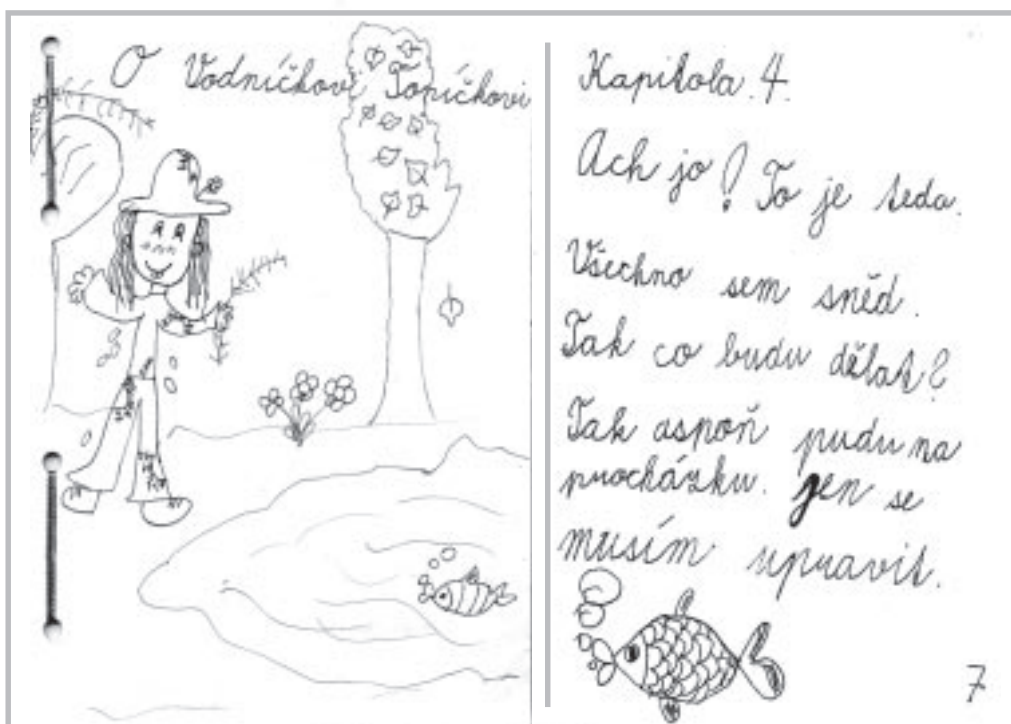 O Vodníčkovi Toníčkovi
Kapitola. 4.
Ach jo! To je teda.
Všechno sem sněd.
Tak co budu dělat?
Tak aspoň pudu na
procházku. jen se
musím upravit.
7